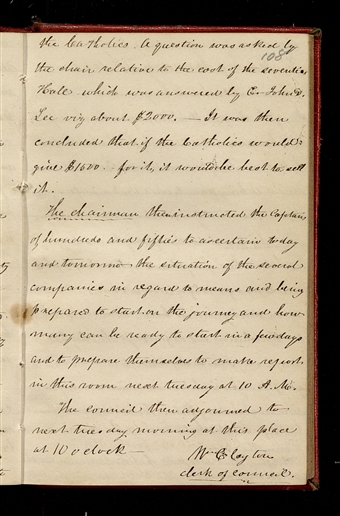 the Catholics. A question was asked by
108
the chair relative to the cost of the seventies
Hall which was answered by Er John D.
Lee viz about $2000. — It was then
concluded that if the Catholics would
give $1500 for it, it would be best to sell
it.
The chairman then instructed the Captains
of hundreds and fifties to ascertain today
and tomorrow the situation of the several
companies in regard to means and being
prepared to start on the journey and how
many can be ready to start in a few days
and to prepare themselves to make report
in this room next tuesday at 10 A.M.
The council then adjourned to
next tuesday morning at this place
at 10 o clock —
Wm Clayton
clerk of council.